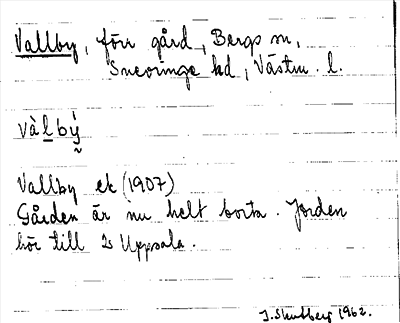 Vallby, förr gård, Bergs sn,
Snevringe hd, Västm. l.
vàlbý
Vallby ek (1907)
Gården är nu helt borta. Jorden
hör till Uppsala.
1962.